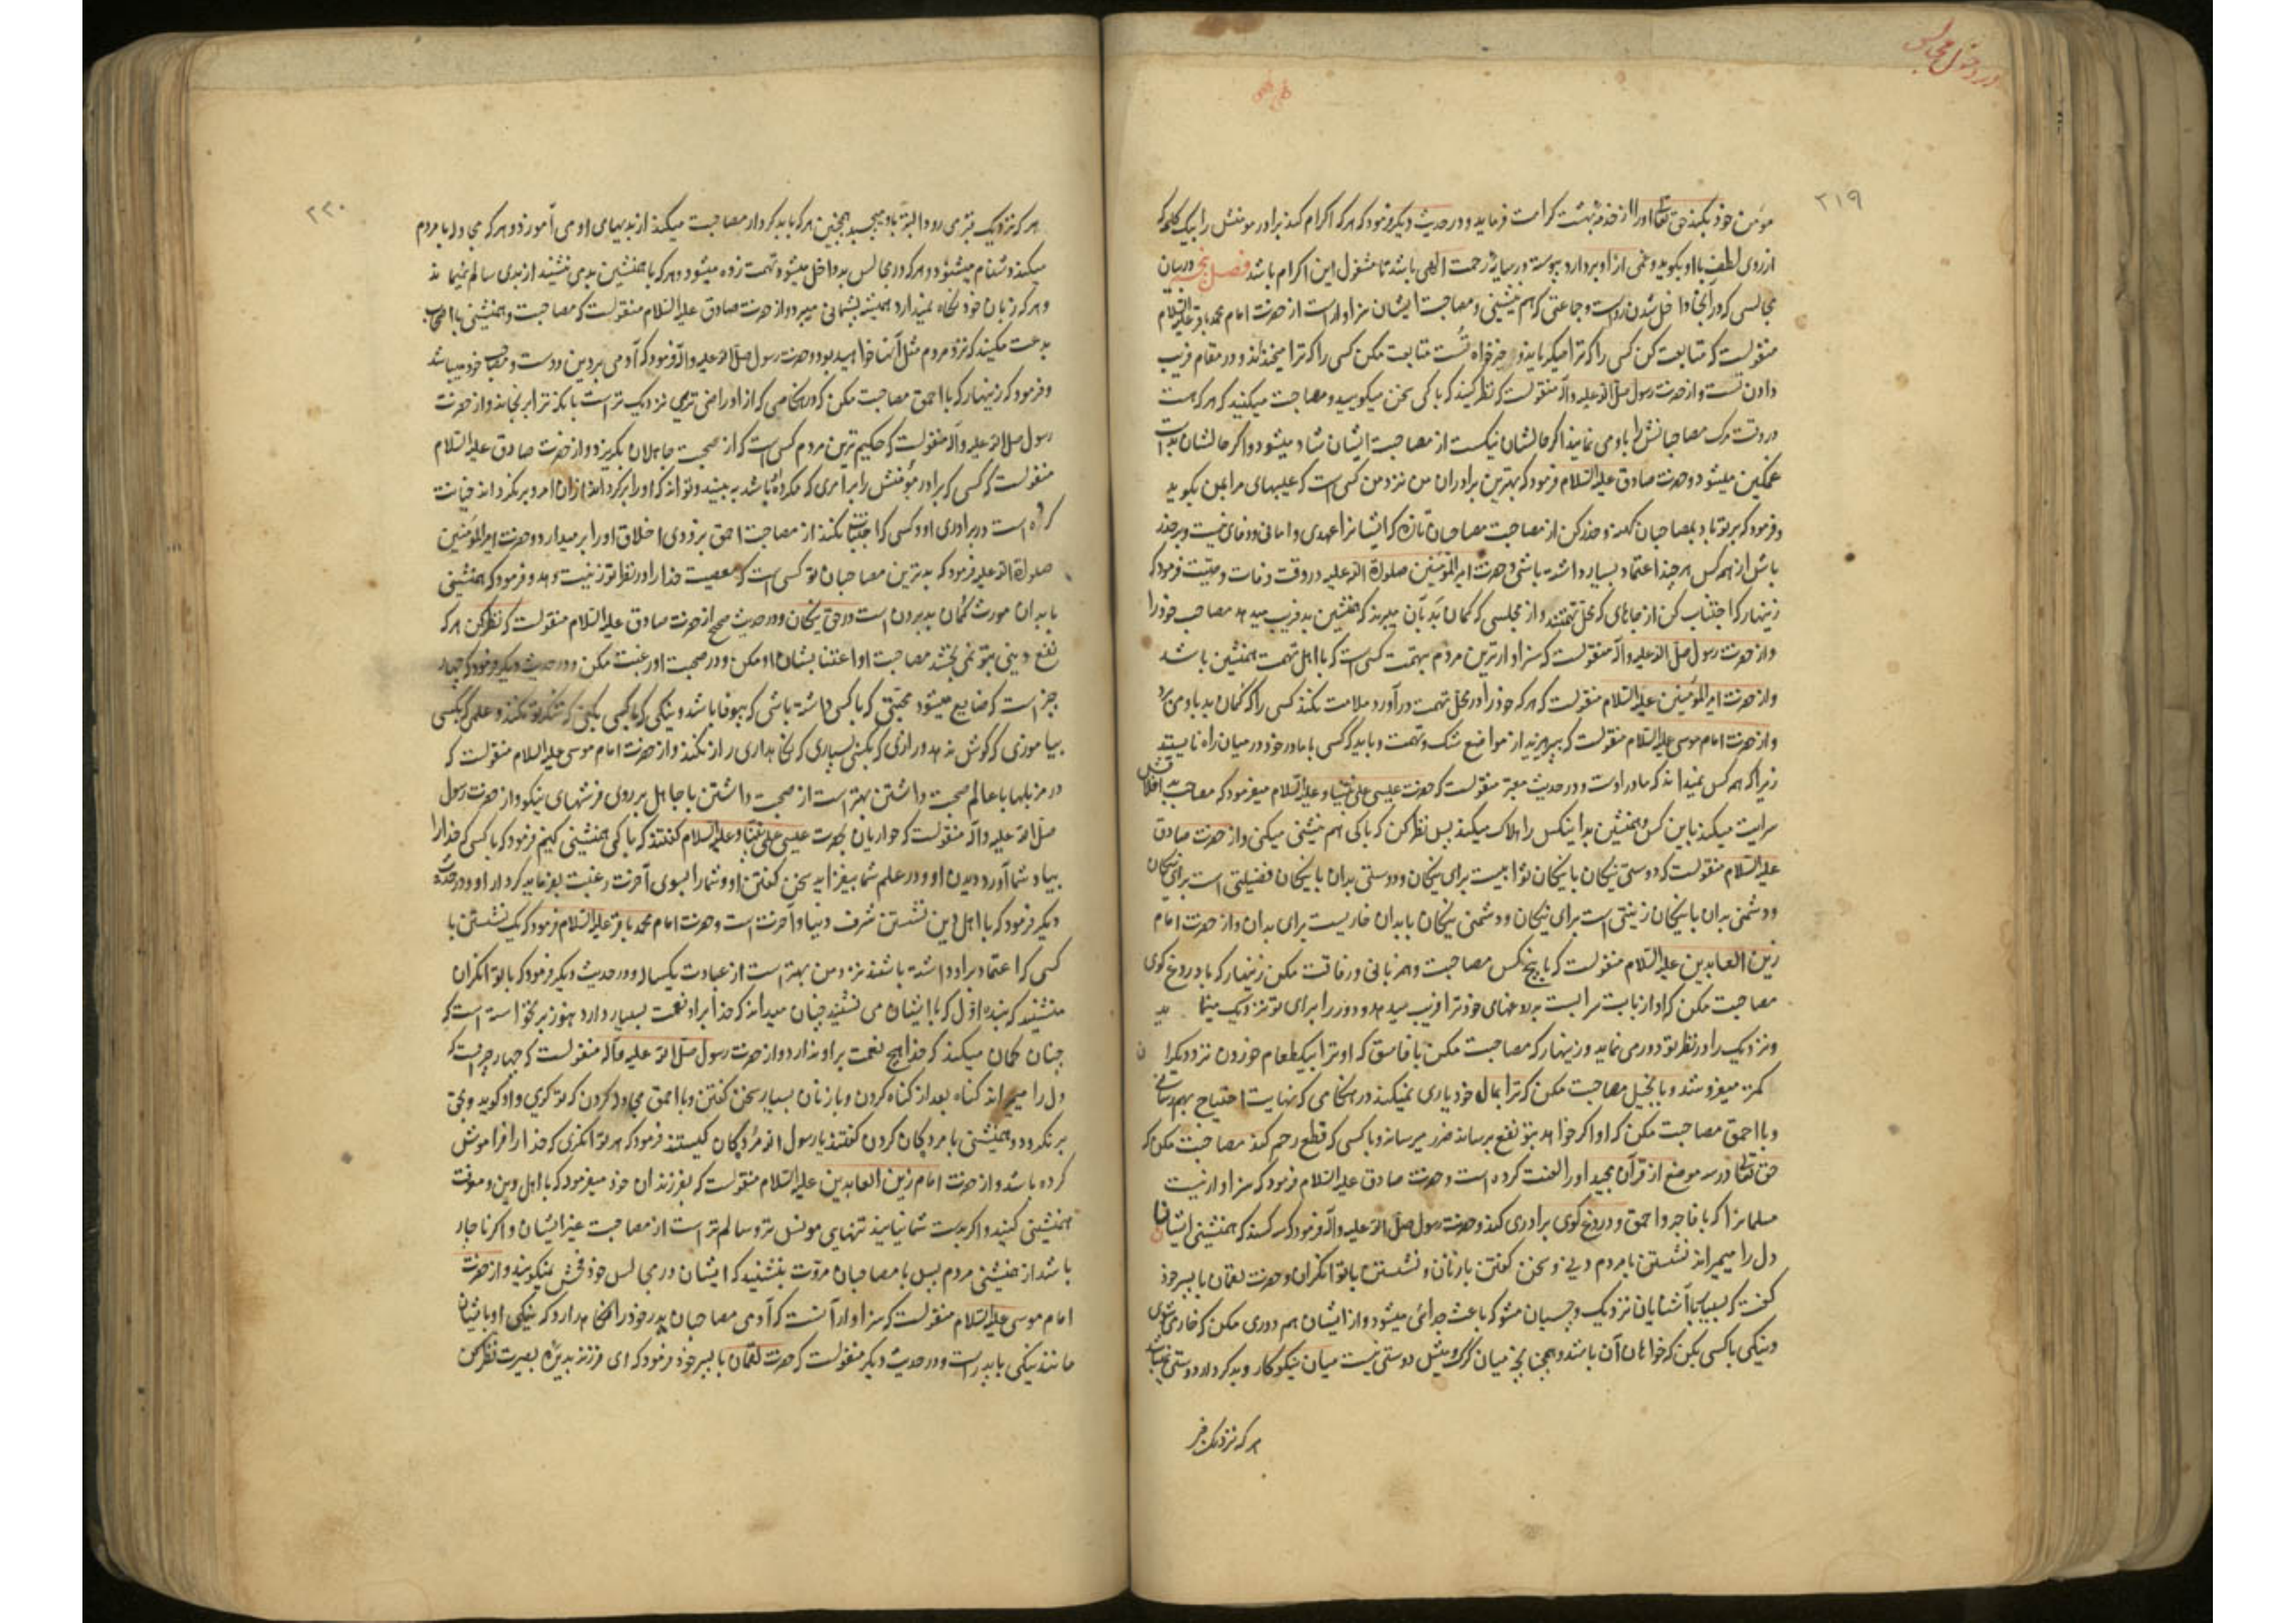 در دخول مجالس
۲۱۹
مؤمن خود بکند حق تعالی او را از خدمهٔ بهشت کرامت فرماید و در حدیث دیگر فرمود که هر که اکرام کند برادر مومنش را بیک کلمه که
از روی لطف باو بگوید و غمی از او بردارد پیوسته در سایهٔ رحمت الهی باشد تا مشغول این اکرام باشد فصل پنجم در بیان
مجالسی که در آنجا داخل شدن رواست و جماعتی که هم نشینی و مصاحبت ایشان سزاوار است از حضرت امام محمد باقر علیه السلام
منقولست که متابعت کن کسی را که ترا میگریاند و خیرخواه تُست متابعت مکن کسی را که ترا میخنداند و در مقام فریب
دادن تست و از حضرت رسول صلی الله علیه واله منقولست که نظر کنید که با کی سخن میگویید و مصاحبت میکنید که هر که هست
در وقت مرک مصاحبانش را باو می نمایند اگر حالشان نیکست از مصاحبت ایشان شاد میشود و اگر حالشان بد است
غمگین میشود و حضرت صادق علیه السلام فرمود که بهترین برادران من نزد من کسی است که عیبهای مرا بمن بگوید
و فرمود که بر تو باد بمصاحبان کهنه و حذر کن از مصاحبت مصاحبان تازه که ایشانرا عهدی و امانی و وفای نیست و بر حذر
باش از همه کس هر چند اعتماد بسیار داشته باشی و حضرت امیرالمؤمنین صلوة الله علیه در وقت وفات وصیّت فرمود که
زینهار که اجتناب کن از جاهای که محل تهمتند و از مجلسی که گمان بد بآن میبرند که همنشین بد فریب میدهد مصاحب خود را
و از حضرت رسول صلی الله علیه واله منقولست که سزاوارترین مردم بتهمت کسی است که با اهل تهمت همنشین باشد
و از حضرت امیرالمؤمنین علیه السلام منقولست که هر که خود را در محل تهمت درآورد ملامت نکند کسی را که گمان بد باو می برد
و از حضرت امام موسی علیه السلام منقولست که بپرهیزید از مواضع شک و تهمت و باید که کسی با مادر خود در میان راه نایستد
زیرا که همه کس نمیداند که مادر اوست و در حدیث معتبر منقولست که حضرت عیسی علی نبینا و علیه السلام میفرمود که مصاحب بد اخلاقش
سرایت میکند باین کس و همنشین بد اینکس را هلاک میکند پس نظر کن که با کی هم نشینی میکنی و از حضرت صادق
علیه السلام منقولست که دوستی نیکان با نیکان ثوابیست برای نیکان و دوستی بدان با نیکان فضیلتی است برای نیکان
و دشمنی بدان با نیکان زینتی است برای نیکان و دشمنی نیکان با بدان خواریست برای بدان و از حضرت امام
زین العابدین علیه السلام منقولست که با پنج کس مصاحبت و همزبانی و رفاقت مکن زینهار که با دروغ گوی
مصاحبت مکن که او از بابت سرابست بدروغهای خود ترا فریب میدهد و دور را برای تو نزدیک مینماید
و نزدیک را در نظر تو دور می نماید و زینهار که مصاحبت مکن با فاسق که او ترا بیک طعام خوردن نزد دیگران
کمتر میفروشد و با بخیل مصاحبت مکن که ترا بمال خود یاری نمیکند در هنگامی که نهایت احتیاج بهم رسانی
و با احمق مصاحبت مکن که او اگر خواهد بتو نفع برساند ضرر میرساند و با کسی که قطع رحم کند مصاحبت مکن که
حق تعالی در سه موضع از قرآن مجید او را لعنت کرده است و حضرت صادق علیه السلام فرمود که سزاوار نیست
مسلمانرا که با فاجر و احمق و دروغ گوی برادری کند و حضرت رسول صلی الله علیه واله فرمود که سه کسند که همنشینی ایشان
دل را میمیراند نشستن با مردم دنی و سخن گفتن با زنان و نشستن با توانگران و حضرت لقمان با پسر خود
گفت که بسیار با آشنایان نزدیک و چسبان مشو که باعث جدائی میشود و از ایشان هم دوری مکن که خوار می شوی
و نیکی با کسی بکن که خواهان آن باشد و همچنانچه میان گرگ و میش دوستی نیست میان نیکوکار و بدکردار دوستی نمیباشد
هر که نزدیک قیر
۲۲۰
هر که نزدیک قیر می رود البته باو میچسبد همچنین هر که با بدکردار مصاحبت میکند از بدیهای او می آموزد و هر که مجادله با مردم
میکند دشنام میشنود و هر که در مجالس بد داخل میشود تهمت زده میشود و هر که با همنشین بد می نشیند از بدی سالم نمیماند
و هر که زبان خود نگاه نمیدارد همیشه پشیمانی میبرد و از حضرت صادق علیه السلام منقولست که مصاحبت و همنشینی با اصحاب
بدعت مکنید که نزد مردم مثل آنها خواهید بود و حضرت رسول صلی الله علیه واله فرمود که آدمی بر دین دوست و مصاحب خود میباشد
و فرمود که زینهار که با احمق مصاحبت مکن که در هنگامی که از او راضی تری نزدیک تر است بآنکه ترا برنجاند و از حضرت
رسول صلی الله علیه واله منقولست که حکیم ترین مردم کسی است که از صحبت جاهلان بگریزد و از حضرت صادق علیه السلام
منقولست که کسی که برادر مؤمنش را بر امری که مکروه باشد به بیند و تواند که او را برگرداند از آن امر و برنگرداند خیانت
کرده است در برادری او و کسی که اجتناب نکند از مصاحبت احمق بزودی اخلاق او را بر میدارد و حضرت امیرالمؤمنین
صلوة الله علیه فرمود که بدترین مصاحبان تو کسی است که معصیت خدا را در نظر تو زینت دهد و فرمود که همنشینی
با بدان مورث گمان بد بردن است در حق نیکان و در حدیث صحیح از حضرت صادق علیه السلام منقولست که نظر کن هر که
نفع دینی بتو نمی بخشد مصاحبت او اعتنا بشان او مکن و در صحبت او رغبت مکن و در حدیث دیگر فرمود که چهار
چیز است که ضایع میشود محبتی که با کسی داشته باشی که بیوفا باشد و نیکی که با کسی بکنی که شکر تو نکند و علمی که بکسی
بیاموزی که گوش ندهد و رازی که بکسی بسپاری که نگاهداری راز نکند و از حضرت امام موسی علیه السلام منقولست که
در مزبلها با عالم صحبت داشتن بهتر است از صحبت داشتن با جاهل بر روی فرشهای نیکو و از حضرت رسول
صلی الله علیه واله منقولست که حواریان بحضرت عیسی علی نبینا و علیه السلام گفتند که با کی همنشینی کنیم فرمود که با کسی که خدا را
بیاد شما آورد دیدن او و در علم شما بیفزاید سخن گفتن او و شما را بسوی آخرت رغبت بفرماید کردار او و در حدیث
دیگر فرمود که با اهل دین نشستن شرف دنیا و آخرت است و حضرت امام محمد باقر علیه السلام فرمود که یک نشستن با
کسی که اعتماد بر او داشته باشند نزد من بهتر است از عبادت یکساله و در حدیث دیگر فرمود که با توانگران
منشینید که بنده اوّل که با ایشان می نشیند چنان میداند که خدا بر او نعمت بسیار دارد هنوز برنخواسته است که
چنان گمان میکند که خدا هیچ نعمت بر او ندارد و از حضرت رسول صلی الله علیه واله منقولست که چهار چیز است که
دل را میمیراند گناه بعد از گناه کردن و با زنان بسیار سخن گفتن و با احمق مجادله کردن که تو گوئی و او گوید و بحق
برنگردد و همنشینی با مردگان کردن گفتند یا رسول الله مُردگان کیستند فرمود که هر توانگری که خدا را فراموش
کرده باشد و از حضرت امام زین العابدین علیه السلام منقولست که بفرزندان خود میفرمود که با اهل دین و معرفت
همنشینی کنید و اگر بدست شما نیایند تنهایی مونس تر و سالم تر است از مصاحبت غیر ایشان و اگر ناچار
باشد از همنشینی مردم پس با مصاحبان مروّت بنشینید که ایشان در مجالس خود فحش نمیگویند و از حضرت
امام موسی علیه السلام منقولست که سزاوار آنست که آدمی مصاحبان پدر خود را نگاهدارد که نیکی او با ایشان
مانند نیکی با پدر است و در حدیث دیگر منقولست که حضرت لقمان با پسر خود فرمود که ای فرزند بدیدهٔ بصیرت نظر کن